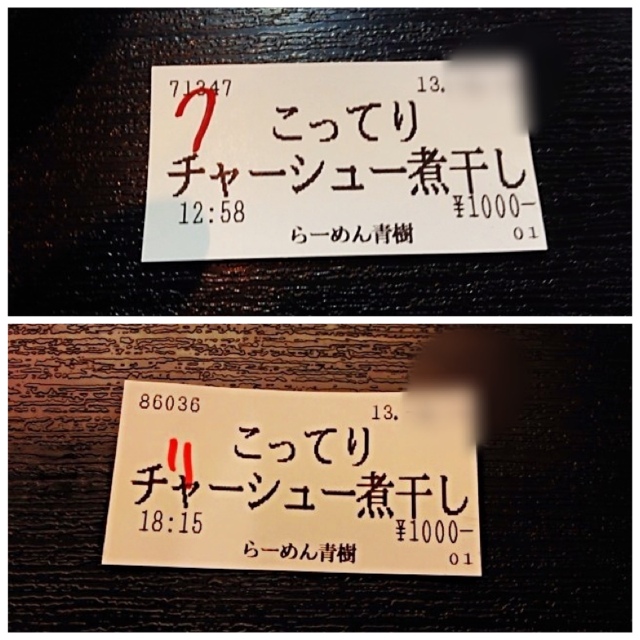 71347 13.
7
こってり
チャーシュー煮干し
12:58 ¥1000-
らーめん青樹 01
86036 13.
11
こってり
チャーシュー煮干し
18:15 ¥1000-
らーめん青樹 01